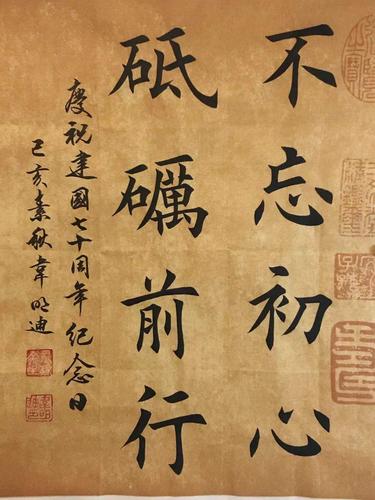 不忘初心
砥礪前行
慶祝建國七十周年紀念日
己亥季秋韋明迪